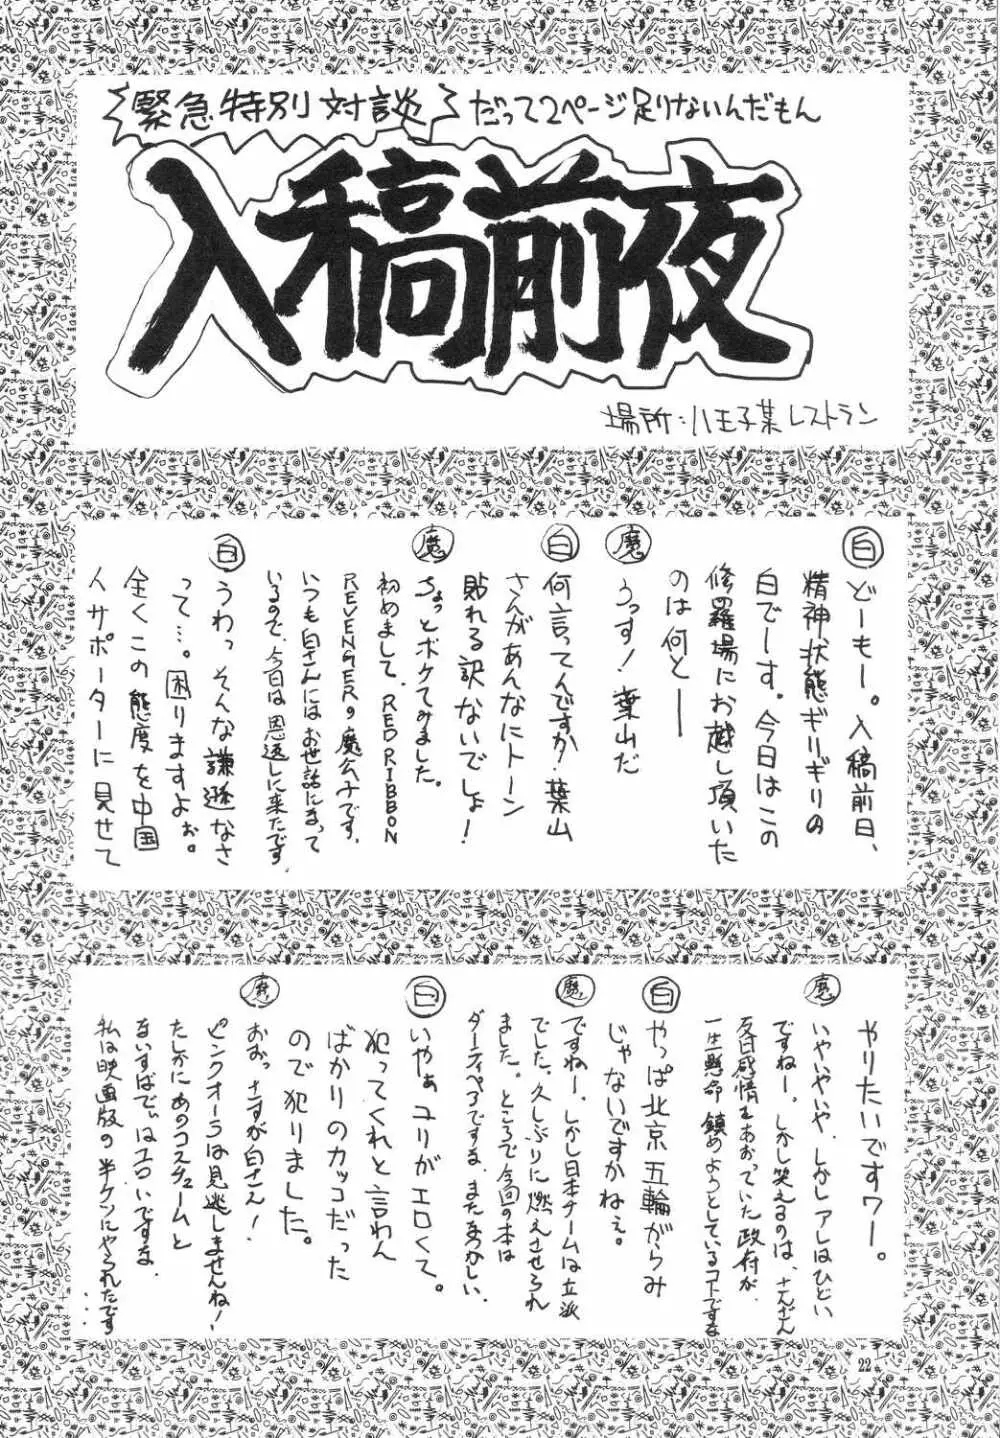 緊急特別対談 だって2ページ足りないんだもん
入稿前夜
場所:八王子某レストラン
白 どーもー。入稿前日、
精神状態ギリギリの
白でーす。今日はこの
修羅場にお越し頂いた
のは何と――
魔 うっす!葉山だ
白 何言ってんですか!葉山
さんがあんなにトーン
貼れる訳ないでしょ!
魔 ちょっとボケてみました。
初めまして、RED RIBBON
REVENGERの魔公子です。
いつも白さんにはお世話になって
いるので、今日は恩返しに来たです
白 うわっそんな謙遜なさ
って…。困りますよぉ。
全くこの態度を中国
人サポーターに見せて
やりたいですワー。
魔 いやいやいや、しかしアレはひどい
ですねー。しかし笑えるのは、さんざん
反日感情をあおっていた政府が、
一生懸命鎮めようとしているコトですな
白 やっぱ北京五輪がらみ
じゃないですかねぇ。
魔 ですねー。しかし日本チームは立派
でした。久しぶりに燃えさせられ
ました。ところで今回の本は
ダーティペアですな。またなつかしい。
白 いやぁ、ユリがエロくて。
犯ってくれと言わん
ばかりのカッコだった
ので犯りました。
魔 おおっ、さすが白さん!
ピンクオーラは見逃しませんね!
たしかにあのコスチュームと
ないすばでぃはエロいですな。
私は映画版の半ケツにやられたです
…
22